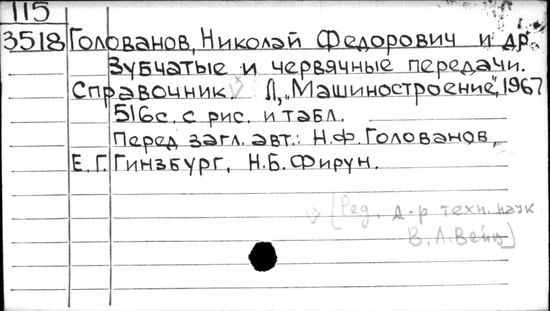 115
3518 Голованов, Николай Федорович и др.
Зубчатые и червячные передачи.
Справочник. Л., "Машиностроение", 1967
516с. с рис. и табл.
Перед загл. авт.: Н.Ф. Голованов,
Е.Г. Гинзбург, Н.Б. Фирун.
[Ред. д-р техн. наук
В.Л. Вейц]